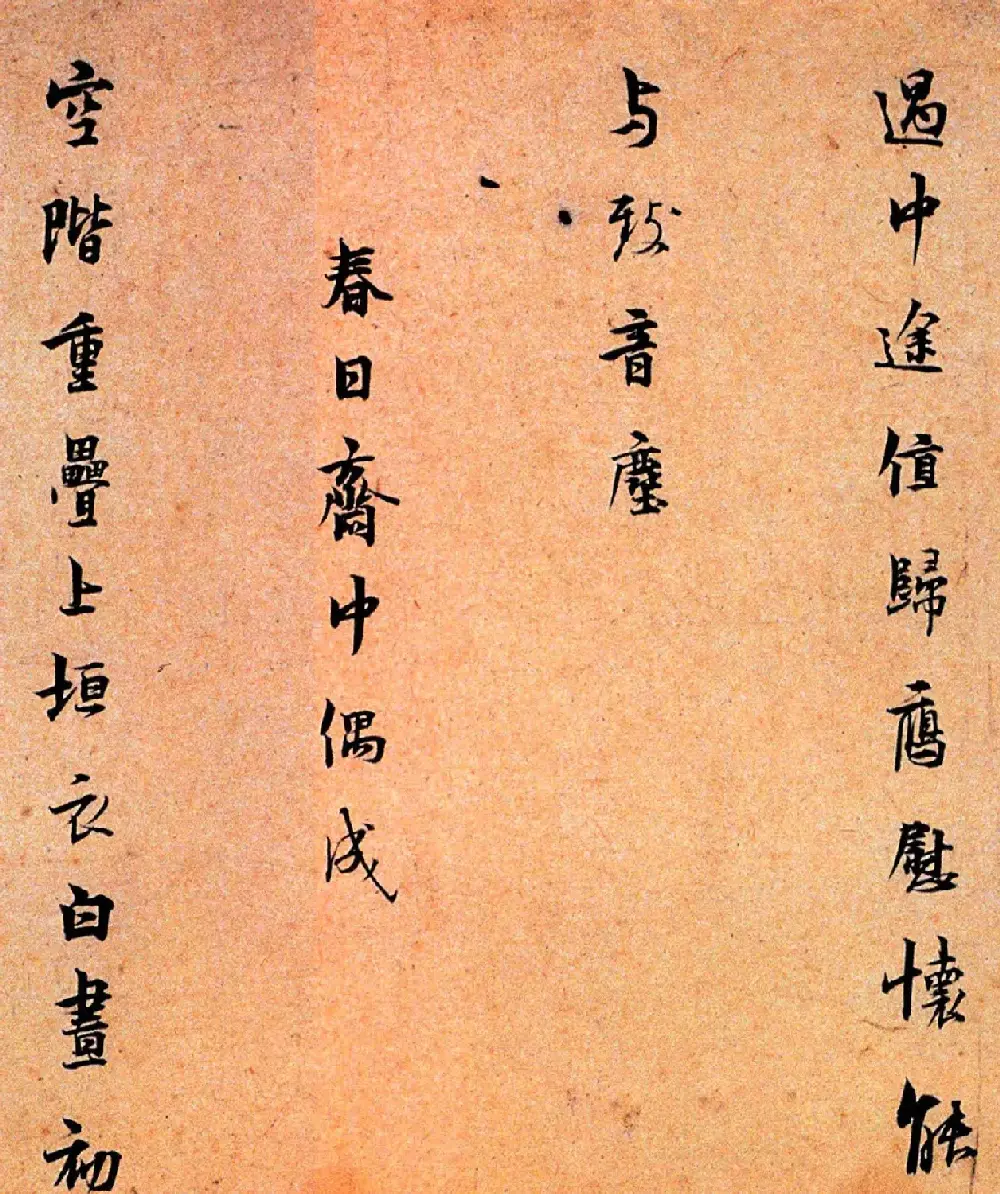 遇中途值歸鴈慰懷能
与致音塵
春日齋中偶成
空階重疊上垣衣白晝初